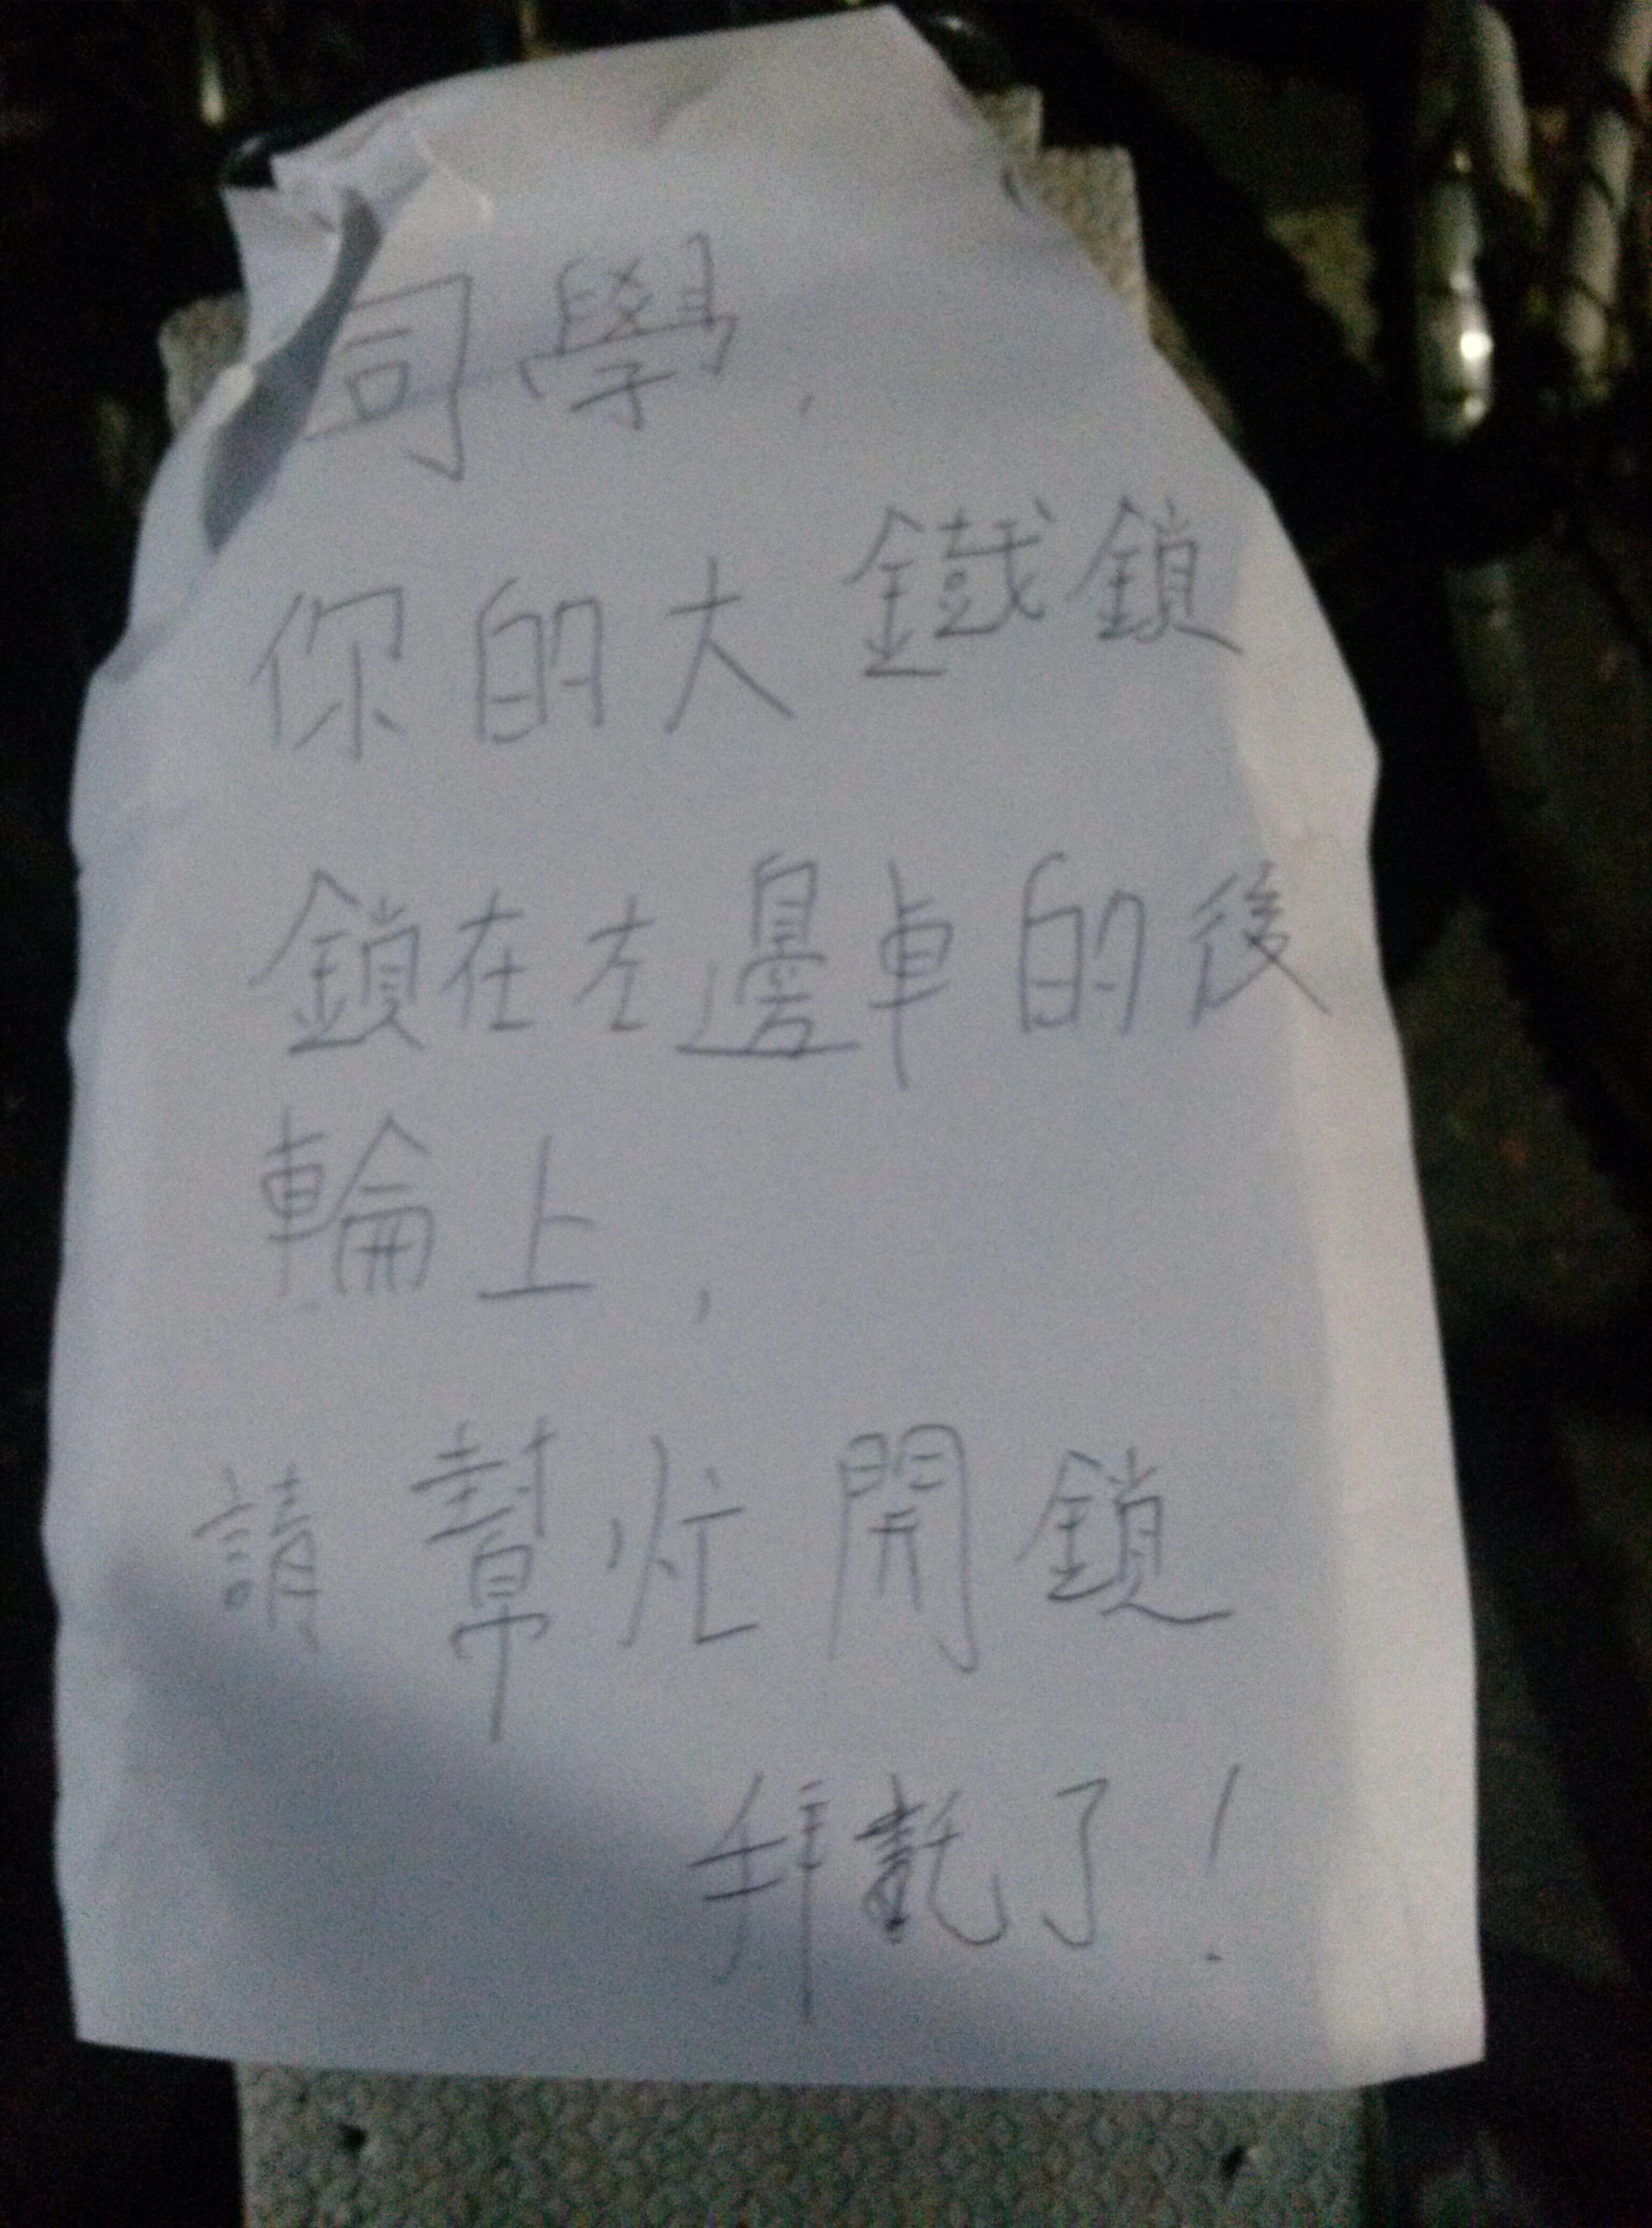 同學,
你的大鐵鎖
鎖在左邊車的後
輪上,
請幫忙開鎖
拜託了!